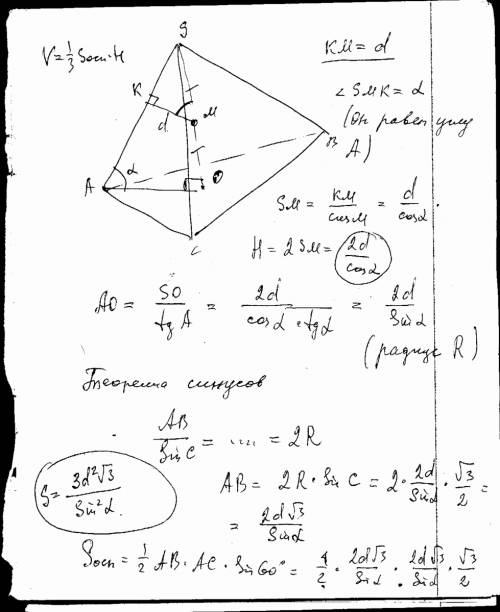 V=⅓Sосн·H
S
KM = d
K
∠ SMK = α
M
d
(Он равен углу
B
A)
A
α
O
C
SM = KM/cosM = d/cosα.
H = 2SM = 2d/cosα
AO = SO/tgA = 2d/(cosα · tgα) = 2d/Sinα
(радиус R)
Теорема синусов
AB/SinC = .... = 2R
S = 3d²√3/Sin²α.
AB = 2R · SinC = 2 · 2d/Sinα · √3/2 =
= 2d√3/Sinα
Sосн = 1/2 AB · AC · Sin60° = 1/2 · 2d√3/Sinα · 2d√3/Sinα · √3/2